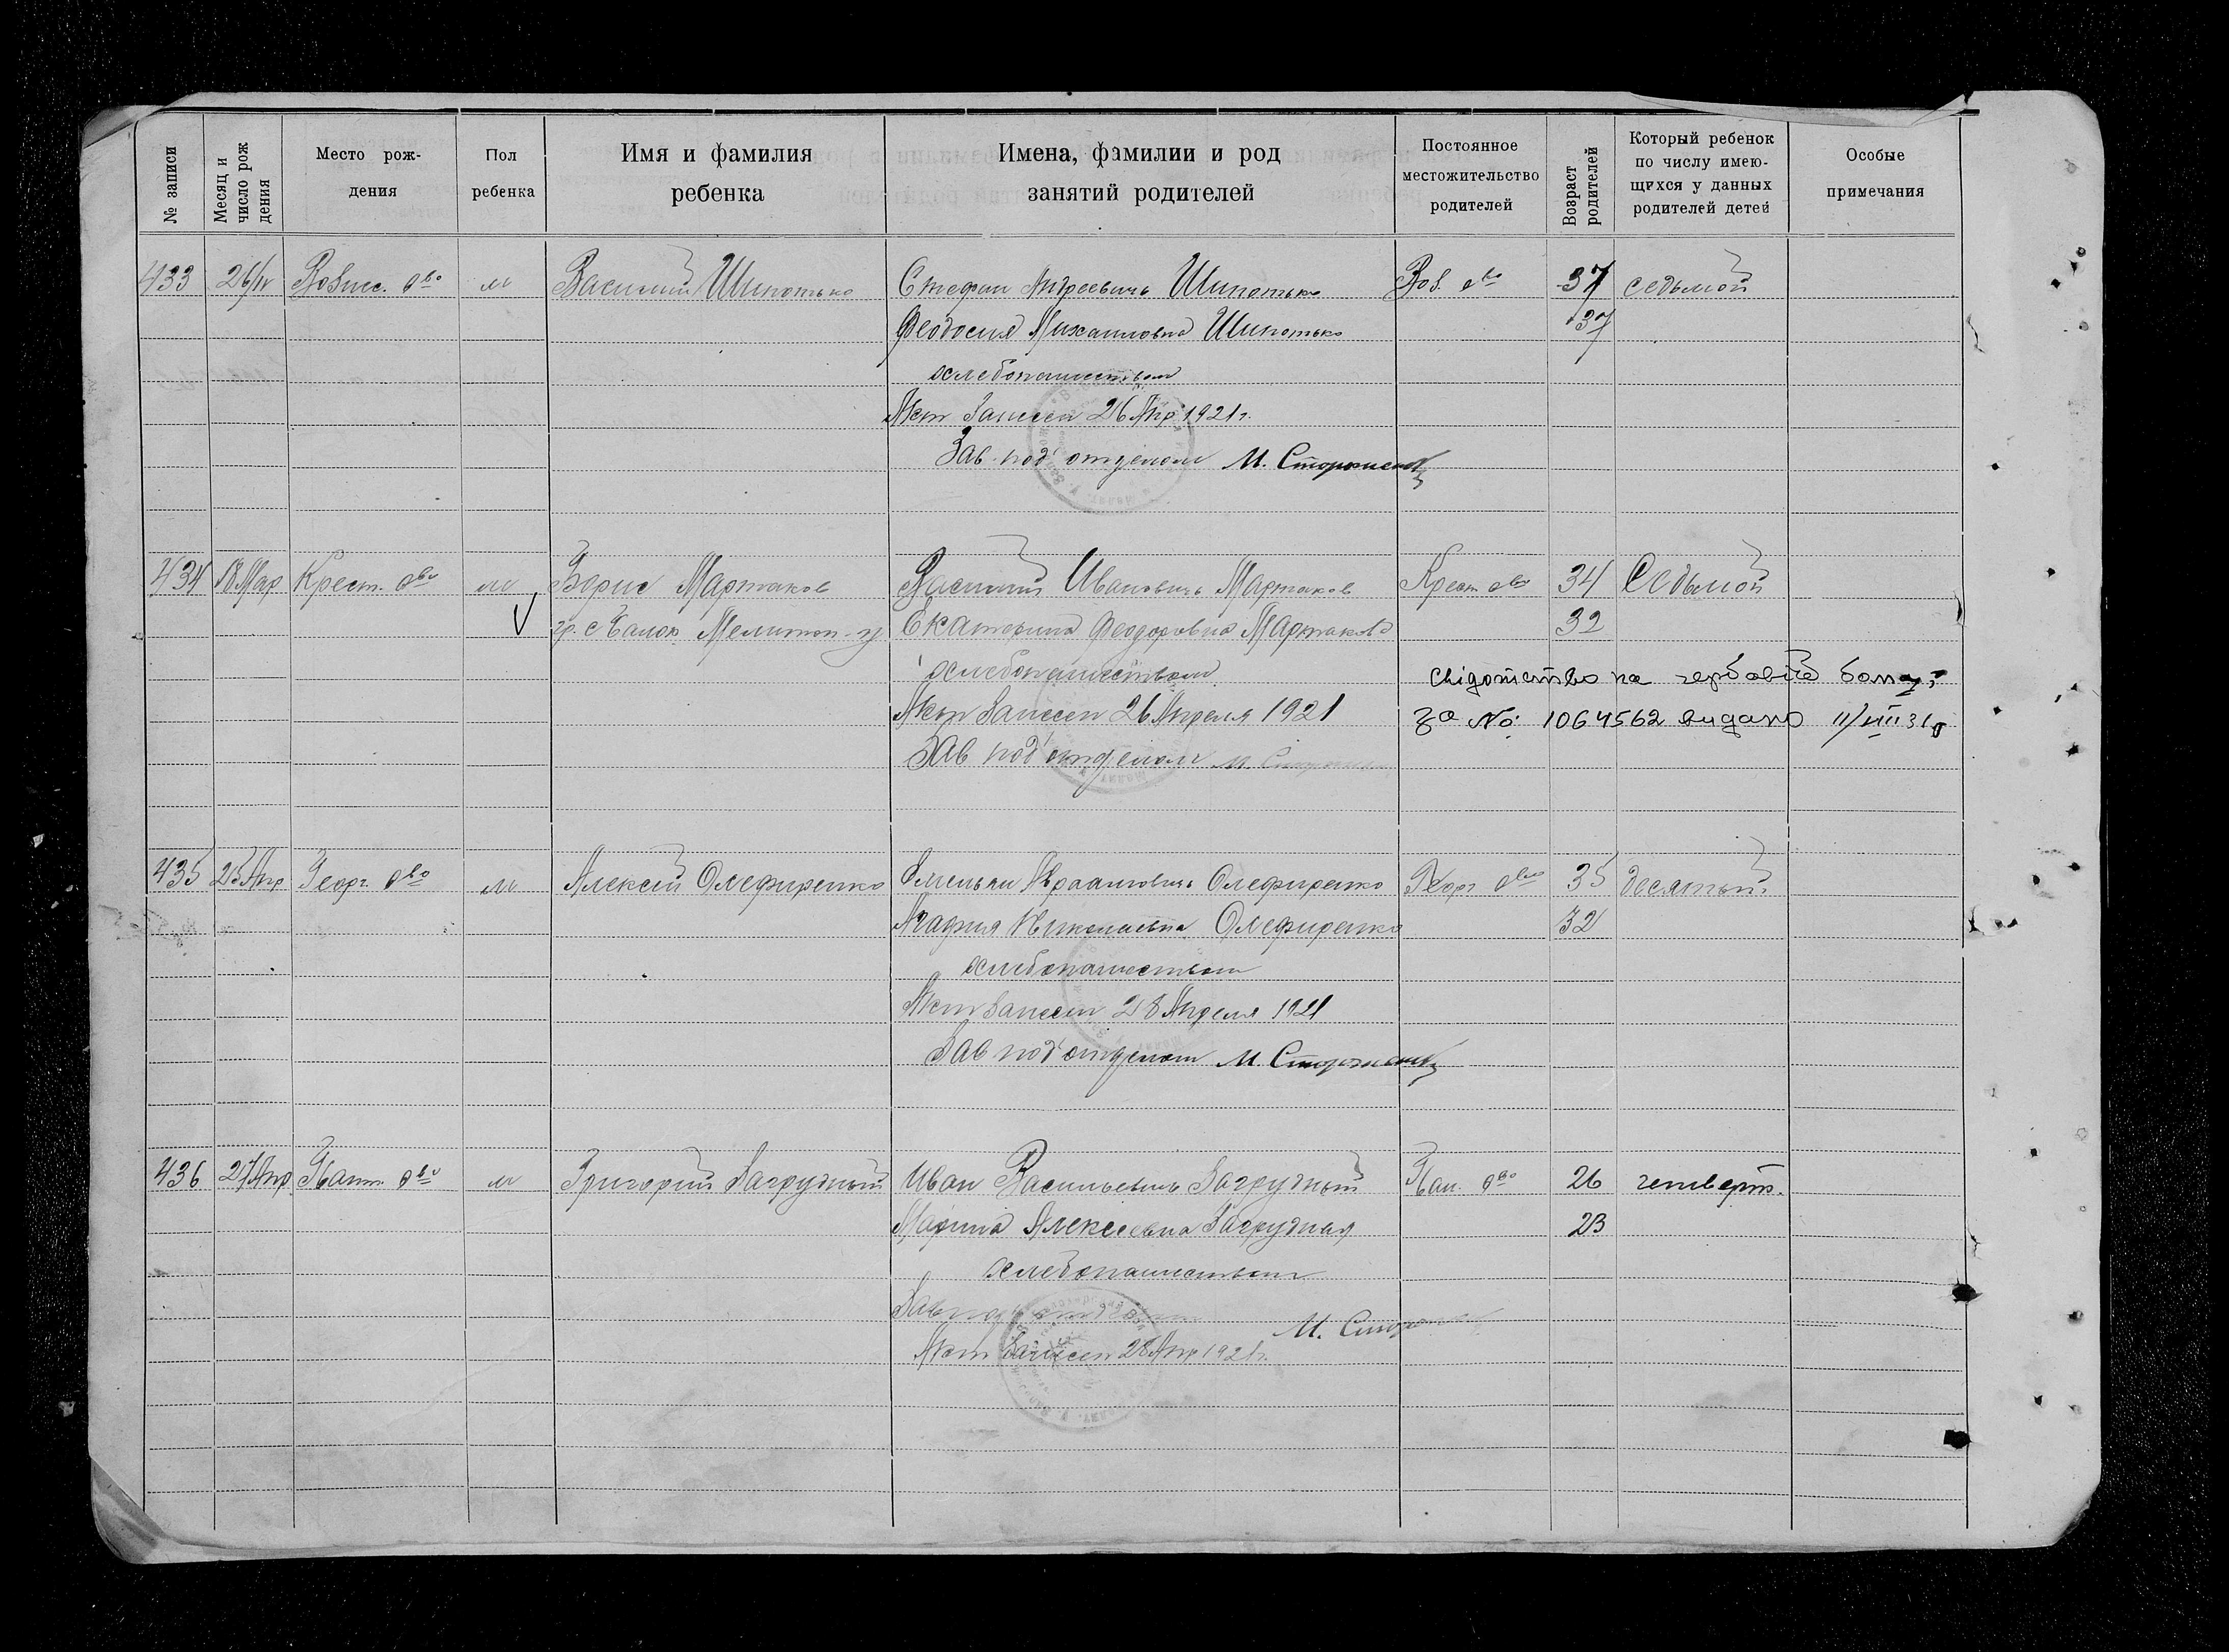 № записи
Месяц и число рождения
Место рождения
Пол ребенка
Имя и фамилия ребенка
Имена, фамилии и род занятий родителей
Постоянное местожительство родителей
Возраст родителей
Который ребенок по числу имеющихся у данных родителей детей
Особые примечания
433 26/IV Вознес. о-во м Василий Шипотько Стефан Андреевичъ Шипотько Воз. о-во 37 седьмой
Феодосия Михаиловна Шипотько 37
хлебопашеством
Акт Занесен 26 Апр 1921 г.
Зав. под отделом М. Стороженко
434 18 Мар Крест. о-во м Борис Мартаков Василий Ивановичъ Мартаков Крест о-во 34 Седьмой
гр. с Мелитоп Екатерина Феодоровна Мартакова 32
хлебопашеством свідотство на гербовій
Акт Занесен 26 Апреля 1921 за №: 1064562 видано 11/VIII 31 р
Зав под отделом М.
435 25 Апр Георг. о-во м Алексей Олефиренко Емельян Авраамовичъ Олефиренко Георг о-во 35 десятый
Агафия Николаевна Олефиренко 32
хлебопашеством
Акт Занесен 28 Апреля 1921
Зав под отделом М. Стороженко
436 27 Апр о-во м Григорий Загрудный Иван Васильевичъ Загрудный о-во 26 четверт.
Марина Алексеевна Загрудная 23
хлебопашеством
Зав под отделом М.
Акт Занесен 28 Апр 1921 г.